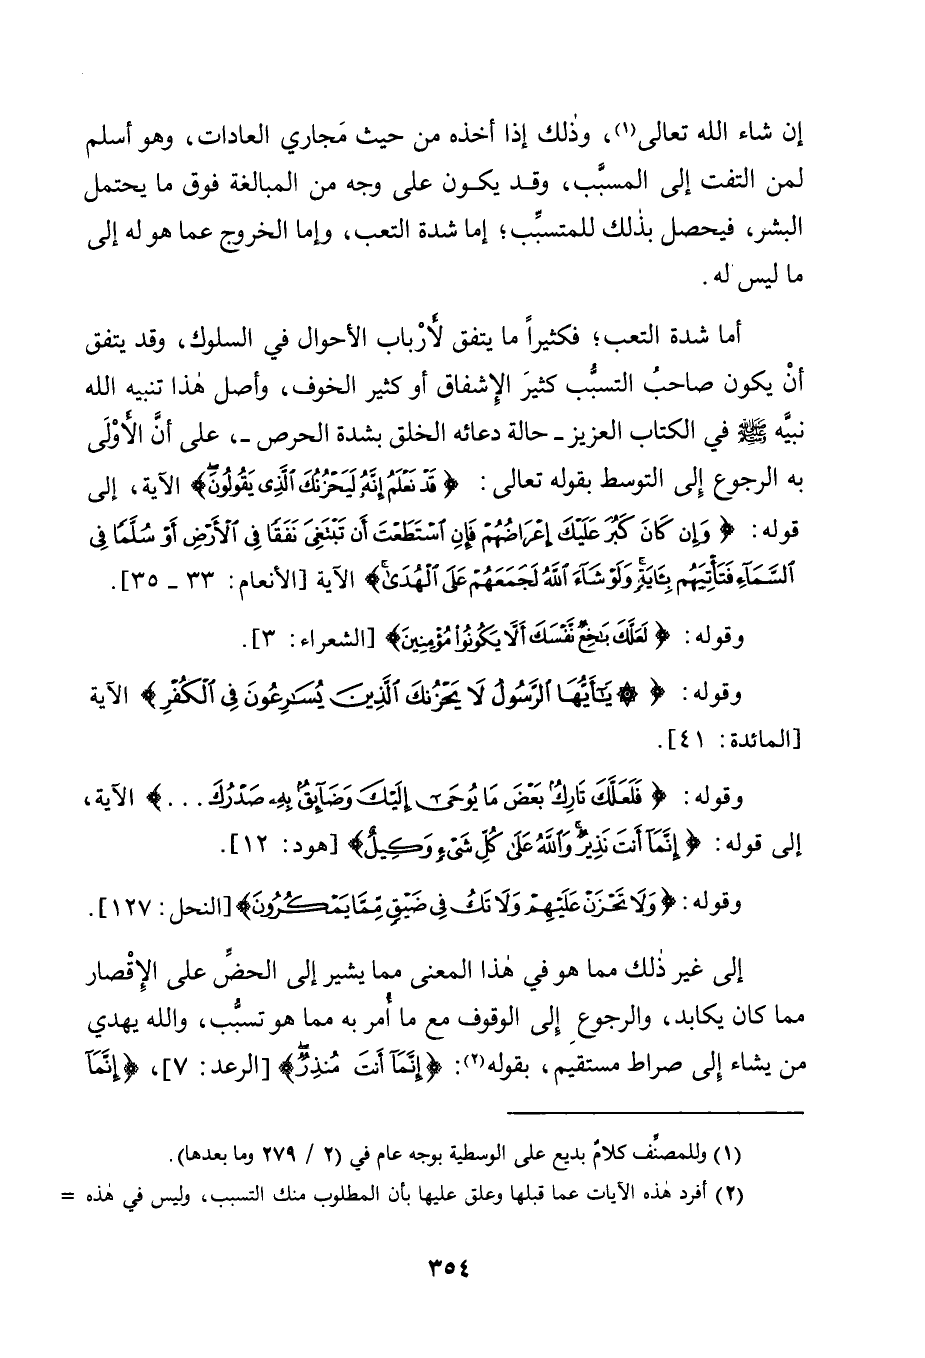 إن شاء الله تعالى(١)، وذٰلك إذا أخذه من حيث مَجاري العادات، وهو أسلم
لمن التفت إلى المسبَّب، وقد يكون على وجه من المبالغة فوق ما يحتمل
البشر، فيحصل بذٰلك للمتسبِّب؛ إما شدة التعب، وإما الخروج عما هو له إلى
ما ليس له.
أما شدة التعب؛ فكثيراً ما يتفق لأَرْباب الأحوال في السلوك، وقد يتفق
أنْ يكون صاحبُ التسبُّب كثيرَ الإشفاق أو كثير الخوف، وأصل هٰذا تنبيه الله
نبيَّه ﷺ في الكتاب العزيز ـ حالة دعائه الخلق بشدة الحرص ـ، على أنَّ الأَوْلَى
به الرجوع إلى التوسط بقوله تعالى: ﴿قَدْ نَعْلَمُ إِنَّهُ لَيَحْزُنُكَ ٱلَّذِى يَقُولُونَۖ﴾ الآية، إلى
قوله: ﴿وَإِن كَانَ كَبُرَ عَلَيْكَ إِعْرَاضُهُمْ فَإِنِ ٱسْتَطَعْتَ أَن تَبْتَغِىَ نَفَقًا فِى ٱلْأَرْضِ أَوْ سُلَّمًا فِى
ٱلسَّمَآءِ فَتَأْتِيَهُم بِـَٔايَةٍۚ وَلَوْ شَآءَ ٱللَّهُ لَجَمَعَهُمْ عَلَى ٱلْهُدَىٰۚ﴾ الآية [الأنعام: ٣٣ ـ ٣٥].
وقوله: ﴿لَعَلَّكَ بَٰخِعٌ نَّفْسَكَ أَلَّا يَكُونُوا۟ مُؤْمِنِينَ﴾ [الشعراء: ٣].
وقوله: ﴿۞ يَٰٓأَيُّهَا ٱلرَّسُولُ لَا يَحْزُنكَ ٱلَّذِينَ يُسَٰرِعُونَ فِى ٱلْكُفْرِ﴾ الآية
[المائدة: ٤١].
وقوله: ﴿فَلَعَلَّكَ تَارِكٌۢ بَعْضَ مَا يُوحَىٰٓ إِلَيْكَ وَضَآئِقٌۢ بِهِۦ صَدْرُكَ ...﴾ الآية،
إلى قوله: ﴿إِنَّمَآ أَنتَ نَذِيرٌۚ وَٱللَّهُ عَلَىٰ كُلِّ شَىْءٍ وَكِيلٌ﴾ [هود: ١٢].
وقوله: ﴿وَلَا تَحْزَنْ عَلَيْهِمْ وَلَا تَكُ فِى ضَيْقٍ مِّمَّا يَمْكُرُونَ﴾ [النحل: ١٢٧].
إلى غير ذٰلك مما هو في هٰذا المعنى مما يشير إلى الحضِّ على الإِقْصار
مما كان يكابد، والرجوع إلى الوقوف مع ما أُمر به مما هو تسبُّب، والله يهدي
من يشاء إلى صراط مستقيم، بقوله(٢): ﴿إِنَّمَآ أَنتَ مُنذِرٌۖ﴾ [الرعد: ٧]، ﴿إِنَّمَآ
(١) وللمصنِّف كلامٌ بديع على الوسطية بوجه عام في (٢ / ٢٧٩ وما بعدها).
(٢) أفرد هٰذه الآيات عما قبلها وعلق عليها بأن المطلوب منك التسبب، وليس في هٰذه =
٣٥٤